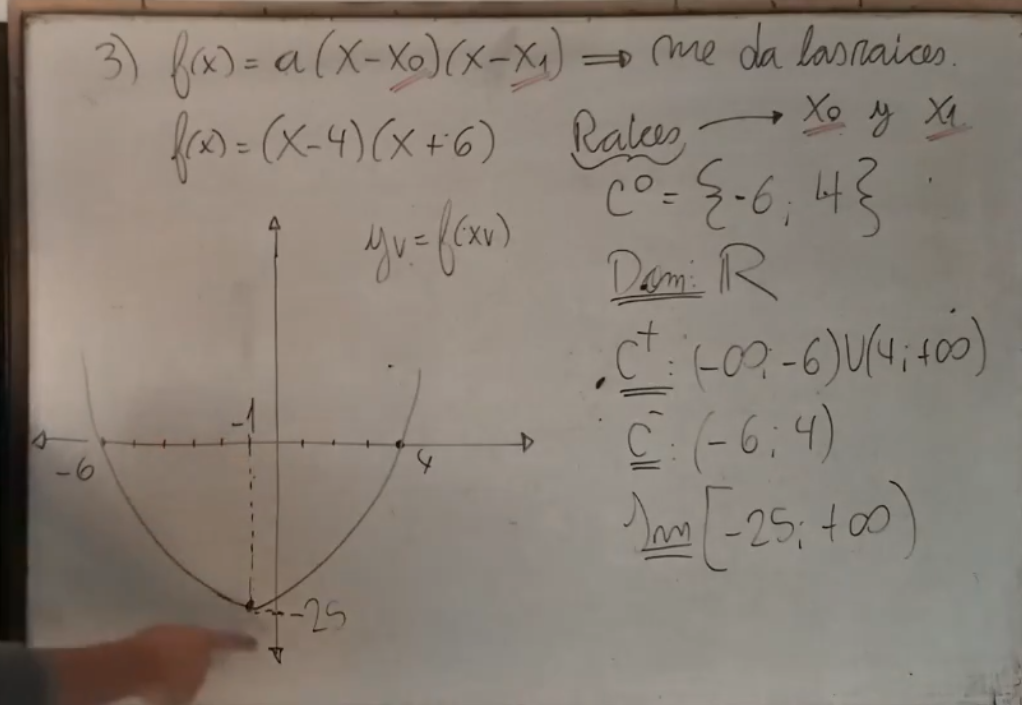 3) f(x) = a(x-x0)(x-x1) ⇒ me da las raices.
f(x) = (x-4)(x+6)
Raíces → x0 y x1
C⁰ = {-6; 4}
yv = f(xv)
Dom: ℝ
C⁺: (-∞; -6)∪(4; +∞)
C⁻: (-6; 4)
Im [-25; +∞)
-1
-6
4
-25